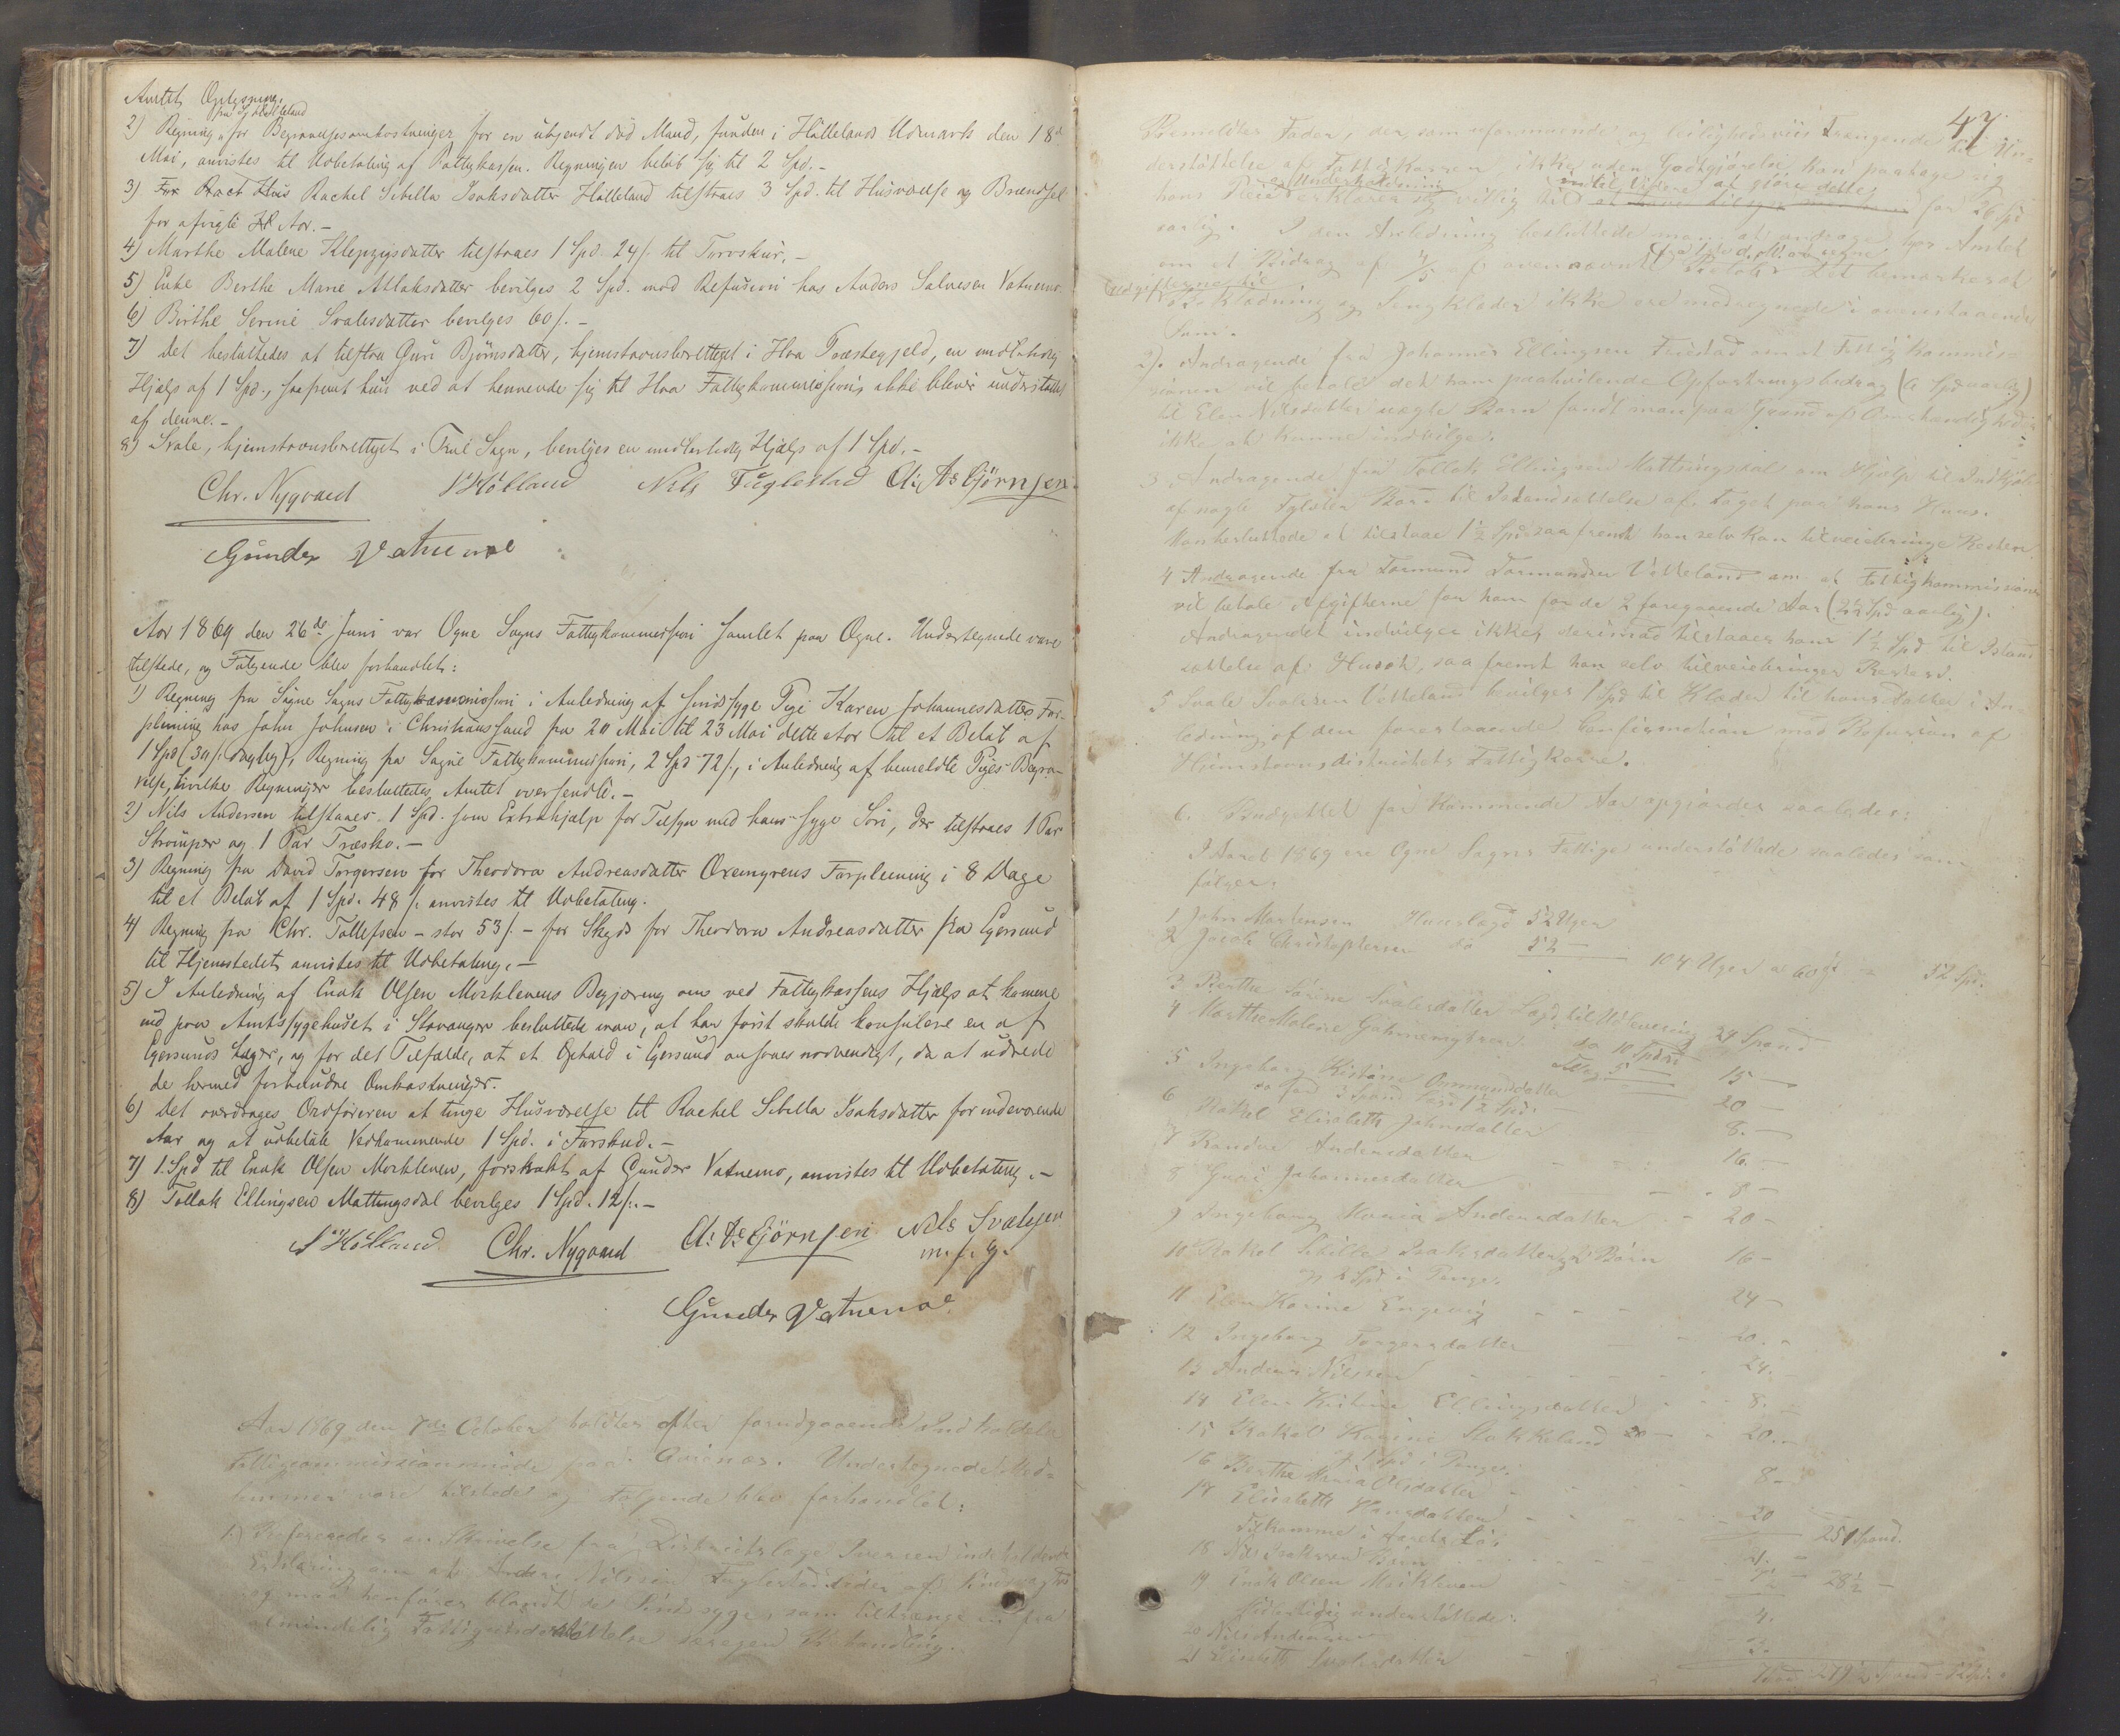 Amtets Oplysning.
fra Sj. Hølleland
2) Regning " for Begravelsesomkostninger for en ubekjendt død Mand, funden i Høllelands Udmark den 18de
Mai, anvistes til Udbetaling af Fattigkassen. Regningen beløb sig til 2 Spd. -
3) Rachel Sibilla Isaksdatter Hølleland tilstaaes 3 Spd. til Husværelse og Brændsel
for afvigte Aar. -
4) Marthe Malene Klepzigsdatter tilstaaes 1 Spd. 24 /. til Torvskur. -
5) Enke Berthe Marie Atlaksdatter bevilges 2 Spd. mod Refusion hos Anders Salvesen Vatnemo.
6) Birthe Serine Svalesdatter bevilges 60 /. -
7) Det besluttedes at tilstaa Guri Bjørnsdatter, hjemstavnsberettiget i Haa Præstegjeld, en midlertidig
Hjælp af 1 Spd., saafremt hun ved at henvende sig til Haa Fattigkommission ikke bliver understøttet
af denne. -
8) Svale, hjemstavnsberettiget i Sogn, bevilges en midlertidig Hjælp af 1 Spd. -
Chr. Nygaard Hølland Nils Fuglestad A: Asbjørnsen
Gunder Vatnemo
Aar 1869 den 26de Juni var Ogne Sogns Fattigkommission samlet paa Ogne. Undertegnede vare
tilstede, og Følgende blev forhandlet:
1) Regning fra Søgne Sogns Fattigkommission i Anledning af sindssyge Pige Karen Johannesdatters For-
pleining hos John Johnsen i Christianssand fra 20 Mai til 23 Mai dette Aar til et Beløb af
1 Spd (30 /. daglig), Regning fra Søgne Fattigkommission, 2 Spd 72 /., i Anledning af bemeldte Piges Begra-
velse, hvilke Regninger besluttedes Amtet oversendte. -
2) Nils Andersen tilstaaes 1 Spd. som Extrahjælp for Tilsyn med hans syge Søn, der tilstaaes 1 Par
Strømper og 1 Par Træsko. -
3) Regning fra David Torgersen for Theodora Andreasdatter Oremyrens Forpleining i 8 Dage
til et Beløb af 1 Spd. 48 /. anvistes til Udbetaling.
4) Regning fra Chr. Tollefsen - stor 53 /. - for Skyds for Theodora Andreasdatter fra Egersund
til Hjemstedet anvistes til Udbetaling. -
5) I Anledning af Enok Olsen Morklevens Begjæring om ved Fattigkassens Hjælp at komme
ind paa Amtssygehuset i Stavanger besluttede man, at han først skulde konsulere en af
Egersunds Læger, og for det Tilfælde, at et Ophold i Egersund ansaaes nødvendigt, da at udrede
de hermed forbundne Omkostninger.
6) Det overdrages Ordføreren at tinge Husværelse til Rachel Sibilla Isaksdatter for indeværende
Aar og at udbetale Vedkommende 1 Spd. i Forskud. -
7) 1 Spd til Enok Olsen Morkleven, forskudt af Gunder Vatnemo, anvistes til Udbetaling. -
8) Tollak Ellingsen Mattingsdal bevilges 1 Spd. 12 /. -
Hølland Chr. Nygaard A: Asbjørnsen Nils Svalesen
m. f. g.
Gunder Vatnemo
Aar 1869 den 7de October holdtes efter forudgaaende Indkaldelse
Fattigcommissionsmøde paa . Undertegnede Med-
lemmer vare tilstede og følgende blev forhandlet:
1.) Refereredes en Skrivelse fra Districtslæge indeholdende
Erklæring om at Anders Nilssen Fuglestad lider af
og maa henføres blandt de Sindssyge, som tiltrænge en fra
almindelig Fattigunderstøttelse særegen Behandling.
47
Bemeldtes Fader, der som uformuende og leilighedsviis Trængende til Un-
derstøttelse af Fattigkassen ikke uden Godtgjørelse kan paatage sig
og Underholdning indtil Videre at gjøre dette
hans Pleie erklærer sig villig til for 26 Spd
aarlig. I den Anledning besluttede man at andrage hos Amtet
om et Bidrag af 4/5 for ovennævnte Beløb. Det bemærkes at
Udgifterne til
Beklædning og Sengklæder ikke ere medregnede i ovenstaaende
Sum.
2). Andragende fra Johannes Ellingsen Fuglestad om at Fattigkommis-
sionen vil betale det ham paahvilende Opfostringsbidrag (6 Spd aarlig)
til Elen Nilsdatters uægte Barn fandt man paa Grund af Omstændigheder
ikke at kunne indvilge.
3 Andragende fra Tollak Ellingsen Mattingsdal om Hjælp til Indkjøb
af nogle Tylfter Bord til Istandsættelse af Taget paa hans Huus.
Man besluttede at tilstaae 1 1/2 Spd saafremt han selv kan tilveiebringe Resten.
4 Andragende fra Tormund Tormundsen om at Fattigkommissionen
vil betale Afgifterne for ham for de 2 foregaaende Aar (2 1/2 Spd aarlig).
Andragendet indvilges ikke, derimod tilstaaes ham 1 1/2 Spd til Istand-
sættelse af Huset, saafremt han selv tilveiebringer Resten.
5 Svale Svalesen bevilges 1 Spd til Klæder til hans Datter i An-
ledning af den forestaaende Confirmation mod Refusion af
Hjemstavnsdistriktets Fattigkasse.
6. Budgettet for kommende Aar opgjordes saaledes:
I Aaret 1869 ere Ogne Sogns Fattige understøttede saaledes som
følger:
1 John Martinsen Huuslægd 52 Uger
2 Jacob Christophersen do 52 — 104 Uger a 60 /. = 52 Spd.
3 Berthe Serine Svalesdatter Lagd til Udlevering 24 Spand
4 Marthe Malene do 10 Spand
Tillæg 5 15 —
5 Ingeborg Kistine Ommundsdatter 20 —
6 Rakel Elisabeth Johnsdatter 8. —
7 Randve Andersdatter 16. —
8 Guri Johannesdatter 8 —
9 Ingeborg Maria Andersdatter 20 -
10 Rakel Sibilla Isaksdatter og 2 Børn 16 -
og 2 Spd i Penge.
11 Elen Karine Engedahl 24 -
12 Ingeborg Torgersdatter 20. -
13 Anders Nilssen 24. -
14 Elen Kistine Ellingsdatter 8. -
15 Rakel Karine Stokkeland 20. -
og 1 Spd i Penge.
16 Berthe Maria Olsdatter 8 -
17 Elisabeth Hansdatter 20 251 Spand.
Tilkomne i Aarets Løb
18 Nils Isaksens Børn
19 Enok Olsen Morkleven 28 1/2 -
Midlertidig understøttede:
20 Nils Andersen 4.
21 Elisabeth 2.